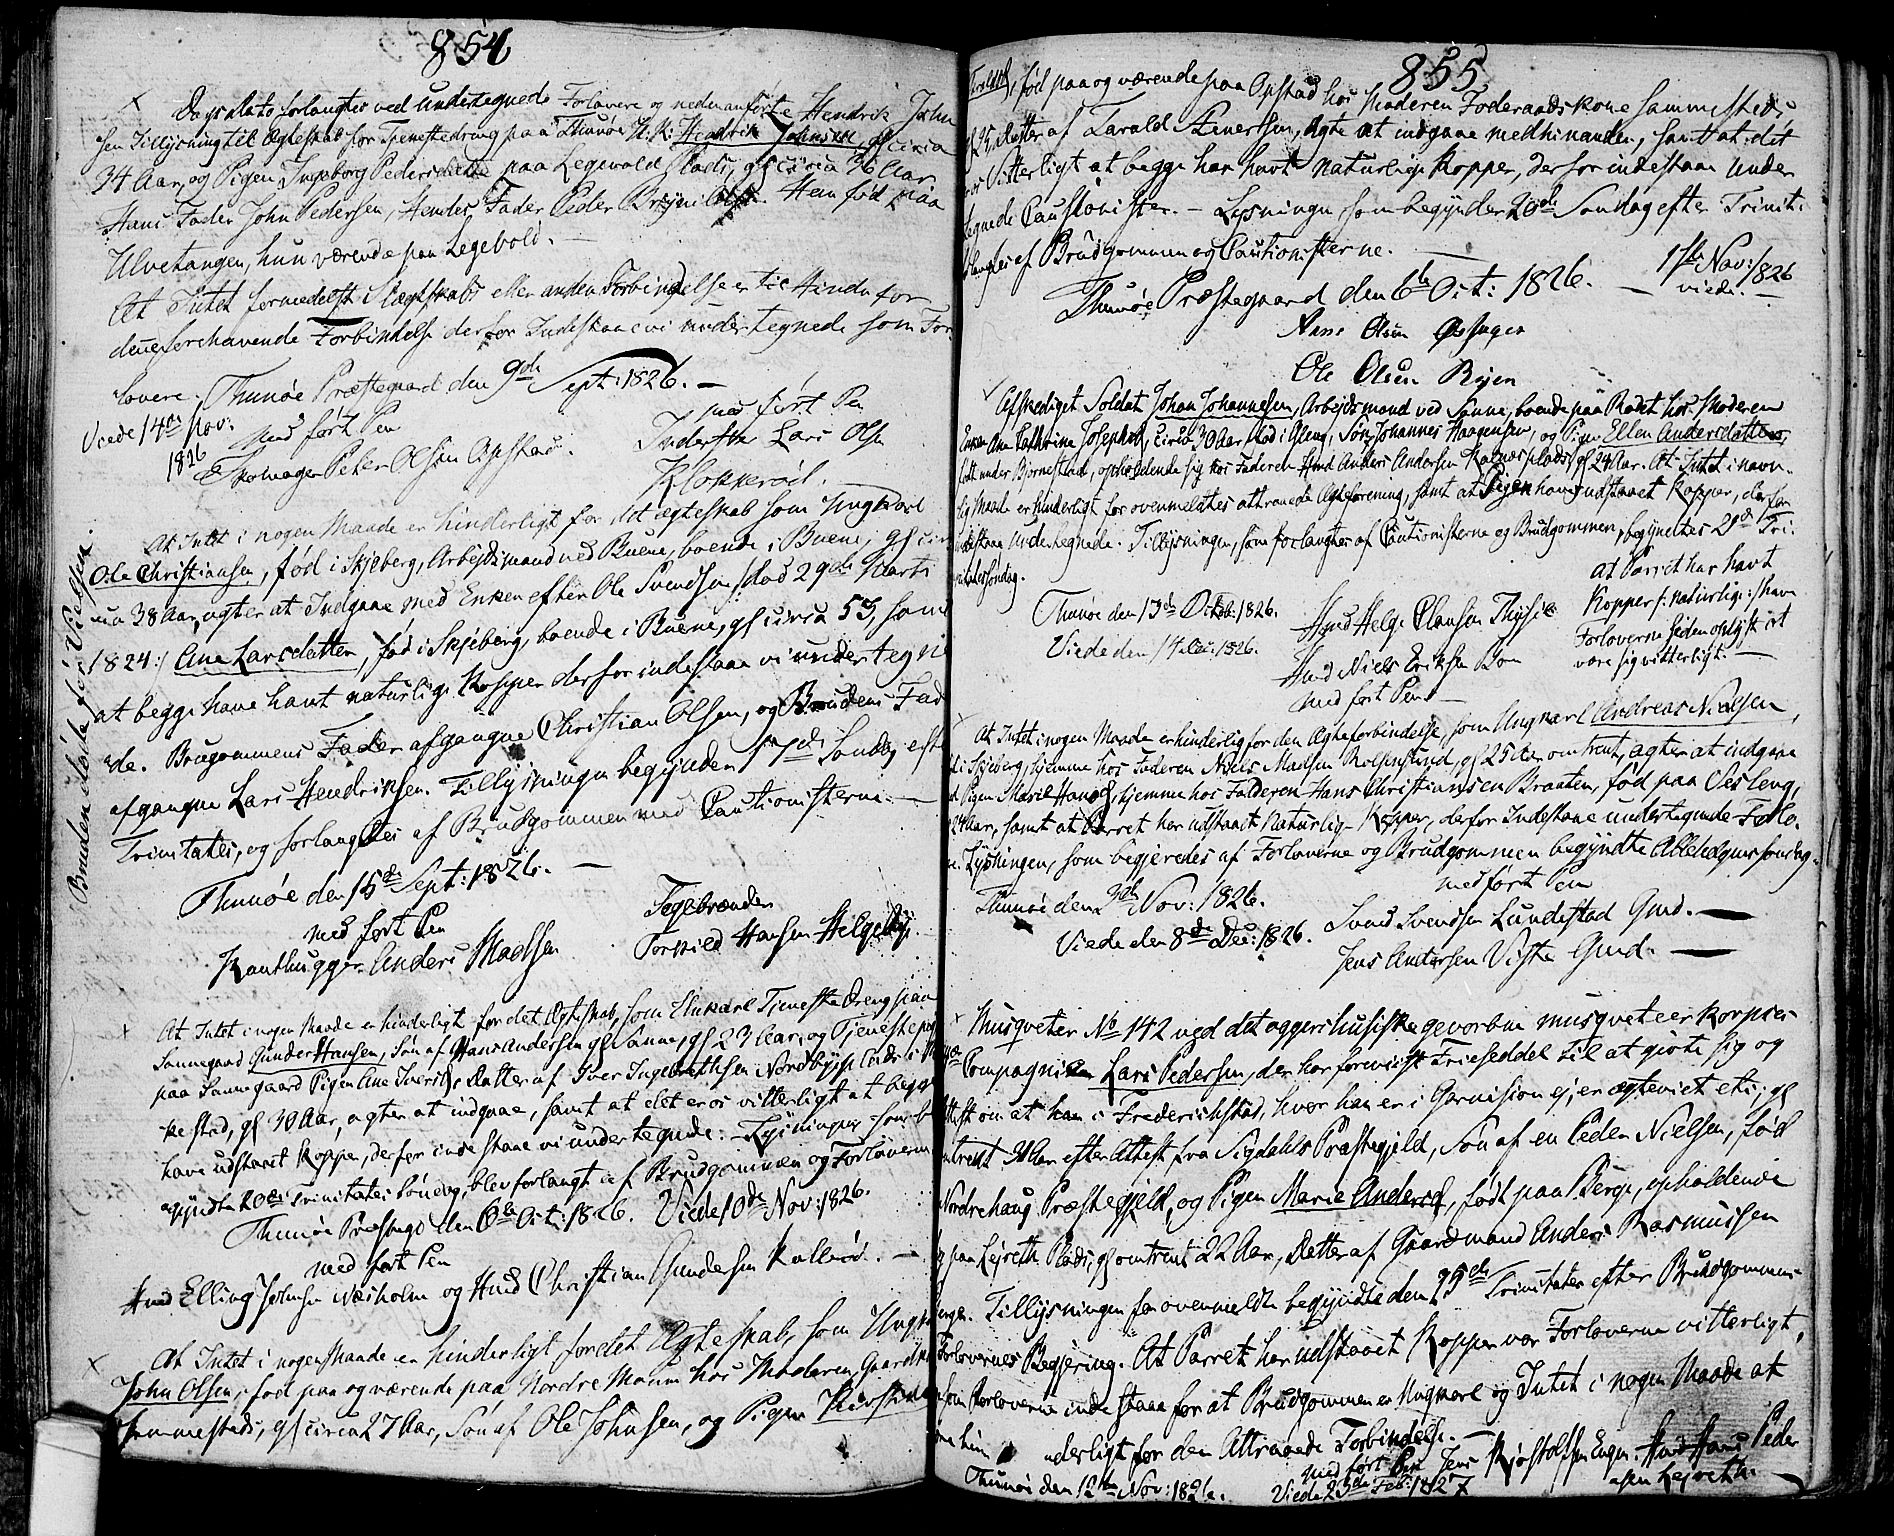 854
Dags Dato forlangtes ved undertegnede Forlovere og nedenanførte Hendrik John
sen Tillysning til Ægteskab for Tjenestedreng paa Thunøe H. K: Hendrik Johnsen, gl circa
34 Aar, og Pigen Ingeborg Pedersdatter paa Legevold Plads, gl circa 36 Aar.
Hans Fader John Pedersen, Hendes Fader Peder. Han fød paa
Ulvetangen, hun værende paa Legevold. —
At Intet formedelst Slægtskabs eller anden Forbindelse er til Hinder for
denne forehavende Forbindelse derfor Indestaae vi undertegnede som For
lovere. Thunøe Præstegaard den 9de Sept: 1826. —
Viede 14de Nov: 1826
med ført Pen
Skomager Peter Olsen Opstad.
med ført Pen
Inderster Lars Olsen
Klokkerød.
At Intet i nogen Maade er hinderligt for det Ægteskab som Ungkarl
Ole Christiansen, fød i Skjeberg, Arbejdsmand ved Buene, boende i Buene, gl cir
ca 38 Aar, agter at Indgaae med Enken efter Ole Svendsen /: død 29de Marts
1824 :/ Ane Larsdatter, fød i Skjeberg, boende i Buene, gl circa 53, samt
at begge have havt naturlige Kopper derfor indestaae vi undertegne
de. Brugommens Fader afgangne Christian Olsen, og Brudens Fad
afgangne Lars Hendriksen. Tillysningen begynder 17de Søndag efter
Trinitates, og forlangtes af Brudgommen med Cautionisterne. —
Thunøe den 15de Sept: 1826. —
med ført Pen
Kanthugger Anders Madsen
Teglbrænder
Torkild Hansen
Bruden døde før Vielsen.
At Intet i nogen Maade er hinderligt for det Ægteskab, som Ungkarl Tjeneste Dreng paa
Sannegaard Gunder Hansen, Søn af Hans Andersen gl Sanne, gl 23 Aar, og Tjenestepige
paa Sannegaard Pigen Ane Iversd, Datter af Iver Ingebrethsen Nordbye
kestad, gl 30 Aar, agter at indgaae, samt at det er os vitterligt at begge
have udstaaet Kopper, derfor indestaae vi undertegnede. Lysningen som be
gyndte 20de Trinitates Søndag, blev forlangt af Brudgommen og Forloverne
Thunøe Præstegd den 6te Oct: 1826. Viede 10de Nov: 1826.
med ført Pen
Hmd Elling Johnsen Næsholm og Hmd Christian Gundersen Kallerød. —
At Intet i nogen Maade er hinderligt for det Ægteskab, som Ungk
John Olsen, fød paa og værende paa Nordre Maum hos Moderen, Gaardk
sammesteds, gl circa 27 Aar, Søn af Ole Johnsen, og Pigen Kirstine
855
Taraldsd, fød paa og værende paa Opstad hos Moderen Foderaadskone sammesteds
gl 25, Datter af Tarald Enertsen, Agte at indgaae med hinanden, samt at det
os Vitterligt at begge har havt naturlige Kopper, derfor indestaae Under
tegnede Cautionister. — Lysningen som begynder 20de Søndag efter Trinit:
forlangtes af Brudgommen og Cautionisterne. —
Thunøe Præstegaard den 6te Oct: 1826. — 17de Nov: 1826 viede. —
Hans Olsen
Ole Olsen Ryen
Afskediget Soldat Johan Johannesen, Arbejdsmand ved Sanne, boende paa Rødet hos Moderen
Enken Ane Cathrine Josephsd, circa 30 Aar, fød i Aleng, Søn Johannes Haagensen, og Pigen Ellen Andersdatter,
født under Bjørnestad, opholdende sig hos Faderen Hmd Anders Andersen Kalnæs plads, gl 24 Aar. At Intet i navn-
lig Maade er hinderligt for ovenmeldtes attraaede Ægteforening, samt at Pigen have udstaaet Kopper, derfor
indestaae Undertegnede. Tillysningen, som forlangtes af Cautionisterne og Brudgommen, begyntes 20de Tri-
nitatessøndag.
Thunøe den 13de Octob: 1826.
Viede den 1 Dec: 1826.
Hmd Helge Clausen
Hmd Niels Eriksen Boe
med ført Pen —
At Parret har havt
Kopper /: naturlige :/ have
Forloverne siden oplyst at
være sig vitterligt. —
At Intet i nogen Maade er hinderlig for den Ægteforbindelse, som Ungkarl Andreas Nielsen,
i Skjeberg, hjemme hos Faderen Niels Madsen Rolfsøsund, gl 25 Aar omtrent, agter at indgaae
Pigen Marie Hansd, hjemme hos Faderen Hans Christiansen Braaten, fød paa Vesteng,
24 Aar, samt at Parret har udstaaet Naturlig Kopper, derfor Indestaae undertegnede Forlo-
re. Lysningen, som begjeredes af Forloverne og Brudgommen begyndte Allehelgenssøndag.
Thunøe den 3de Nov: 1826.
Viede den 8de Dec: 1826.
med ført Pen
Svend Svendsen Lundestad Gmd. —
Jens Andersen Viste Gmd. —
Musqueter No 142 ved det aggershusiske gevorbne musqueteer korpses
Compagnie Lars Pedersen, der har foreviist Frieseddel til at gifte sig og
Attest om at han i Frederichstad, hvor han er i Garnision ej er ægteviet etc, gl
omtrent Aar efter Attest fra Sigdahls Præstegjeld, Søn af en Peder Nielsen, fød
Nordrehaug Præstegjeld, og Pigen Marie Andersd, født paa Berge, opholdende
sig paa Lejreth Plads, gl omtrent 22 Aar, Datter af Gaardmand Anders Rasmussen
Tillysningen for ovenmeldte begyndte den 25de Trinitates efter Brudgommens
Forlovernes Begjering. At Parret har udstaaet Kopper var Forloverne vitterligt,
som Forloverne indestaae for at Brudgommen er Ungkarl og Intet i nogen Maade at
være hinderligt for den Attraaede Forbindelse. —
Thunøe den 12te Nov: 1826. Viede 23de Feb: 1827
med ført Pen Jens Engen. Hmd Hans Peder
sen Lejreth.